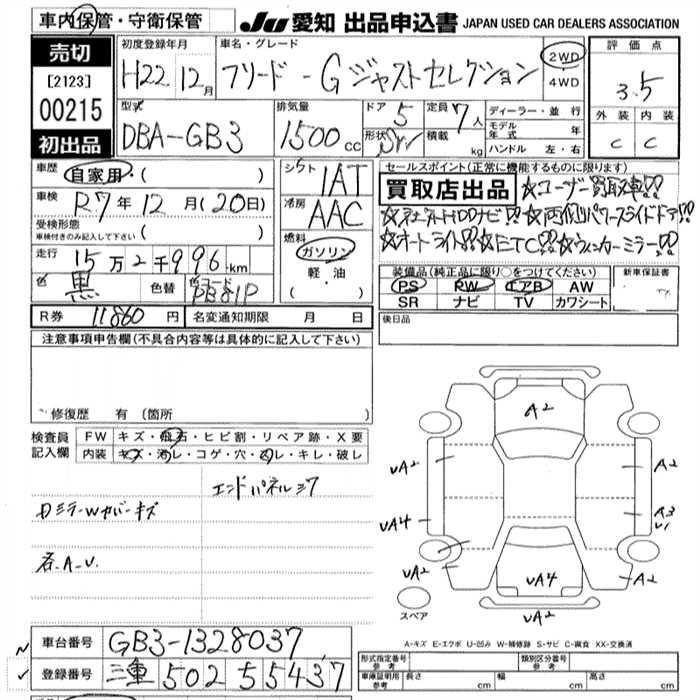 車内保管・守衛保管
JU 愛知 出品申込書 JAPAN USED CAR DEALERS ASSOCIATION
売切
[2123]
00215
初出品
初度登録年月
H22年12月
車名・グレード
フリード - Gジャストセレクション
2WD
4WD
評価点
3.5
外装 内装
C C
型式
DBA-GB3
排気量
1500cc
ドア 5
形状
定員 7人
積載 kg
ディーラー・並行
モデル年式 年
ハンドル 左・右
車歴
自家用・( )
車検
R7年12月(20日)
受検形態
車検付きのみ記入して下さい ( )
走行
15万2千996km
色
黒
色替
色コード
PB81P
シフト
IAT
冷房
AAC
燃料
ガソリン
軽・油
( )
セールスポイント(正常に機能するものに限ります)
買取店出品
☆ユーザー買取車!!
☆HDDナビ!!☆両側パワースライドドア!!
☆オートライト!!☆ETC!!☆ウィンカーミラー!!
装備品(純正品に限り○をつけてください)
PS PW エアB AW
SR ナビ TV カワシート
新車保証書
R券 11860円
名変通知期限 月 日
後日品
注意事項申告欄(不具合内容等は具体的に記入して下さい)
修復歴 有(箇所
検査員記入欄
FW キズ・飛石・ヒビ割・リペア跡・X要
内装 キズ・汚レ・コゲ・穴・スレ・キレ・破レ
エンドパネルシワ
DミラーWカバーキズ
各.A.U.
A2
UA2
A2
UA4
A3
U1
UA2
A2
UA4
UA2
スペア
A-キズ E-エクボ U-凹み W-補修跡 S-サビ C-腐食 XX-交換済
車台番号
GB3-1328037
登録番号
三重 502 55437
形式指定番号
参考
類別区分番号
参考
車庫証明用
参考
長さ cm 幅 cm 高さ cm